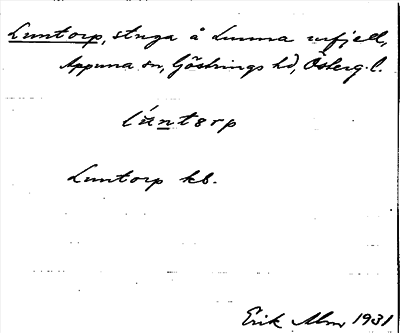 Luntorp, stuga å Lunna utfjell,
Appuna sn, Göstrings hd, Österg. l.
lúntorp
Luntorp kb.
Erik Alm 1931